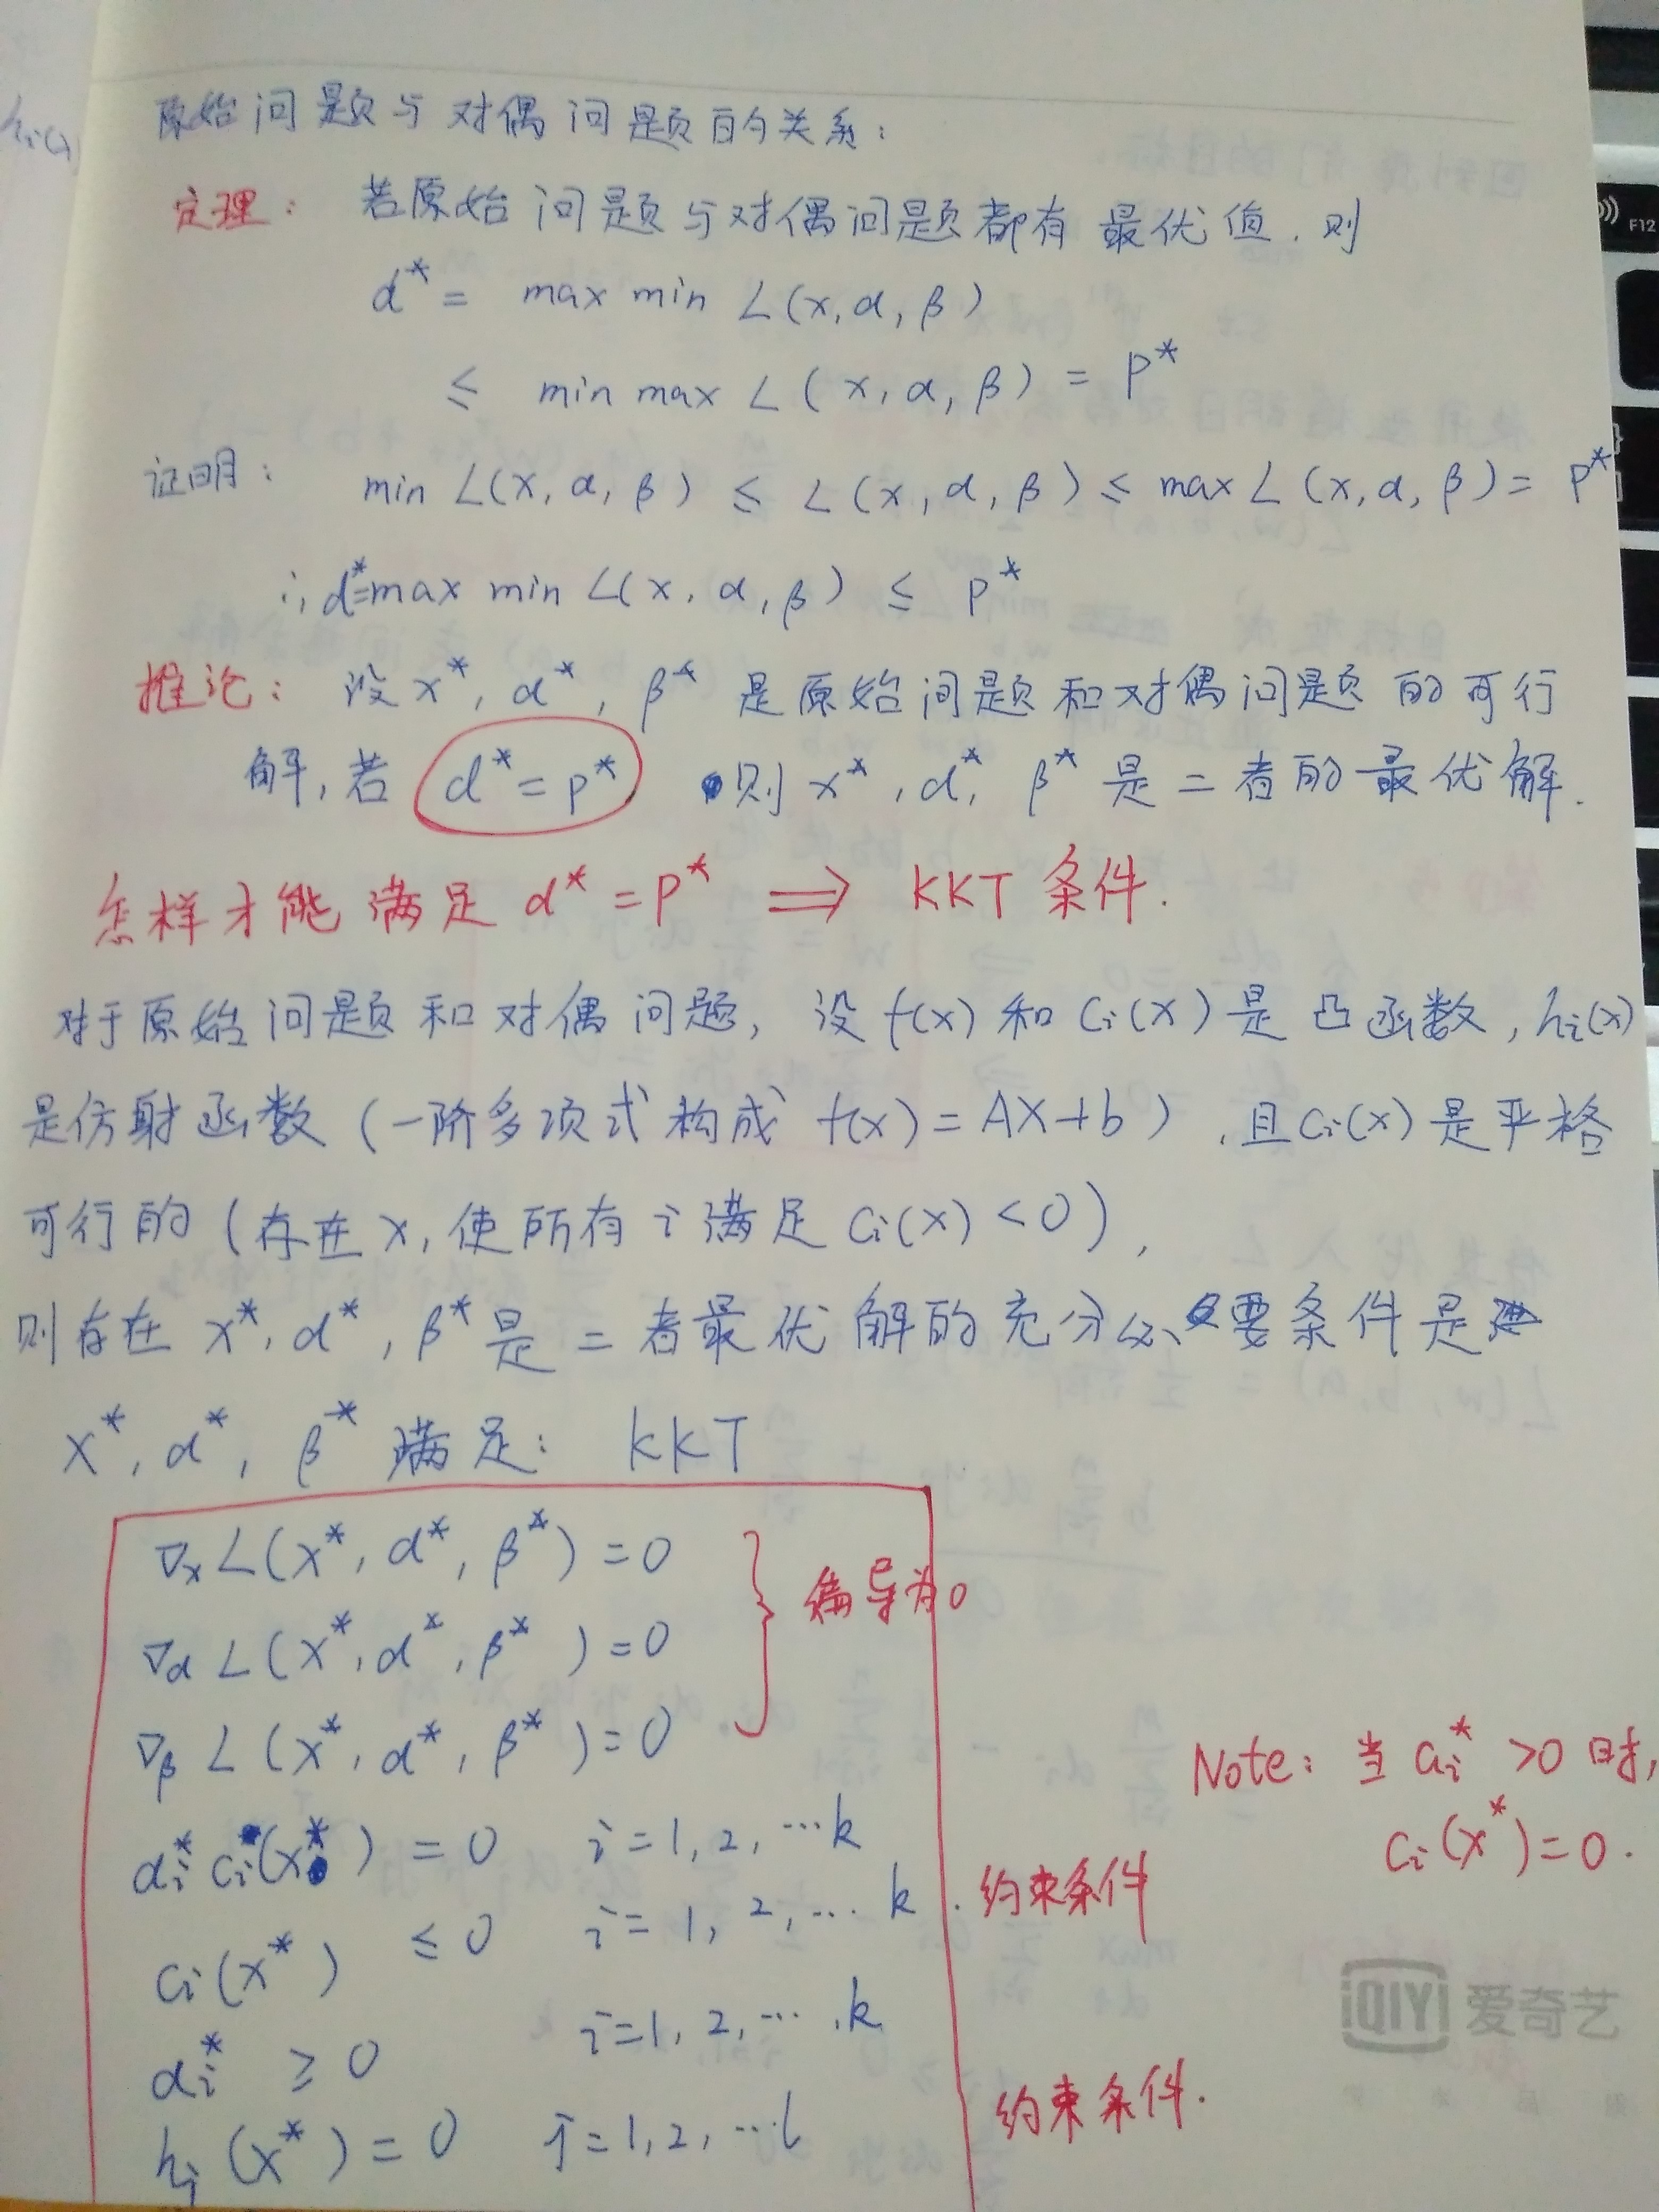 原始问题与对偶问题的关系:
定理: 若原始问题与对偶问题都有最优值,则
d* = max min L(x,α,β)
≤ min max L(x,α,β) = p*
证明: min L(x,α,β) ≤ L(x,α,β) ≤ max L(x,α,β) = p*
∴ d*=max min L(x,α,β) ≤ p*
推论: 设 x*, α*, β* 是原始问题和对偶问题的可行
解,若 d* = p* 则 x*, α*, β* 是二者的最优解.
怎样才能满足 d* = p* ⟹ KKT 条件.
对于原始问题和对偶问题, 设 f(x) 和 ci(x) 是凸函数, hi(x)
是仿射函数 (一阶多项式构成 f(x) = AX+b), 且ci(x) 是严格
可行的 (存在 x, 使所有 i 满足 ci(x) < 0),
则存在 x*, α*, β* 是二者最优解的充分必要条件是
x*, α*, β* 满足: KKT
∇x L(x*, α*, β*) = 0
∇α L(x*, α*, β*) = 0
偏导为0
∇β L(x*, α*, β*) = 0
αi* ci(x*) = 0 i = 1, 2, ⋯ k
Note: 当 ai* > 0 时,
ci(x*) = 0.
ci(x*) ≤ 0 i = 1, 2, ⋯ k. 约束条件
αi* ≥ 0 i = 1, 2, ⋯, k
hj(x*) = 0 j = 1, 2, ⋯ l 约束条件.
iQIYI 爱奇艺
F12